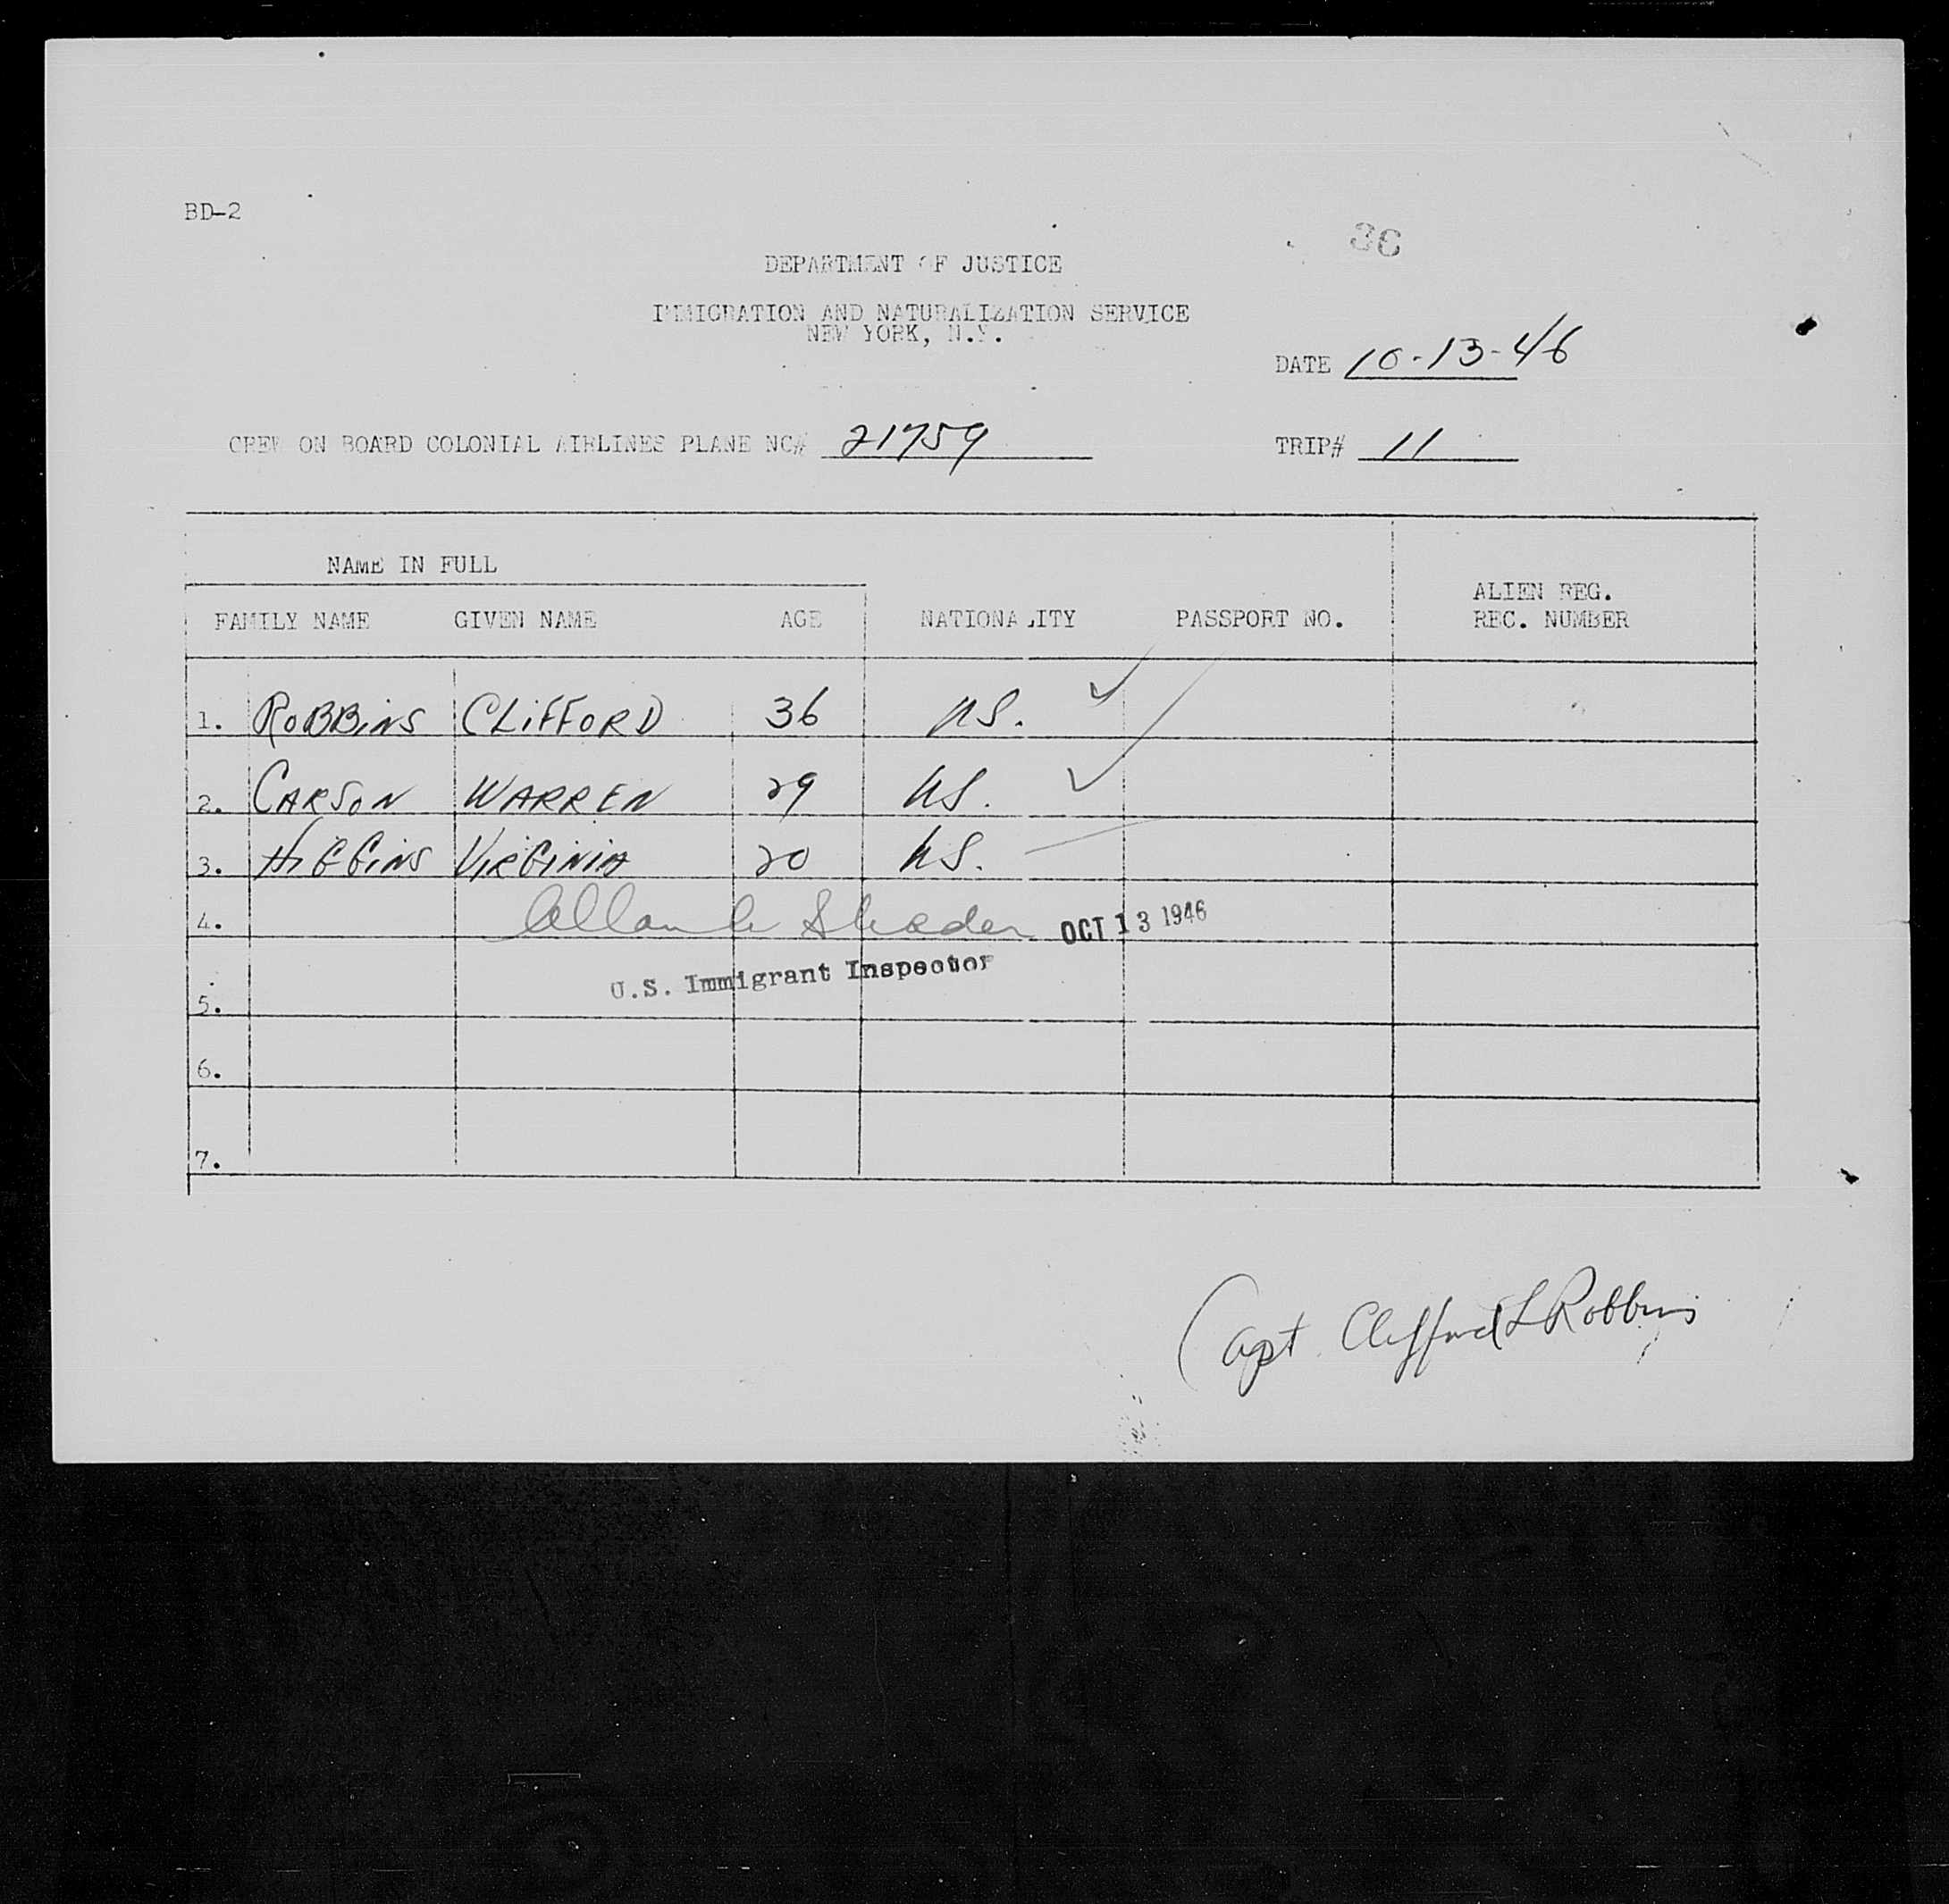 BD-2
36
DEPARTMENT OF JUSTICE
IMMIGRATION AND NATURALIZATION SERVICE
NEW YORK, N.Y.
DATE 10-13-46
CREW ON BOARD COLONIAL AIRLINES PLANE NC# 21759
TRIP# 11
NAME IN FULL
FAMILY NAME GIVEN NAME AGE NATIONALITY PASSPORT NO. ALIEN REG. REC. NUMBER
1. ROBBINS CLIFFORD 36 US. ✓
2. CARSON WARREN 29 US. ✓
3. HIGGINS VIRGINIA 20 US.
4. Allan OCT 13 1946
U.S. Immigrant Inspector
5.
6.
7.
Capt. Clifford L Robbins